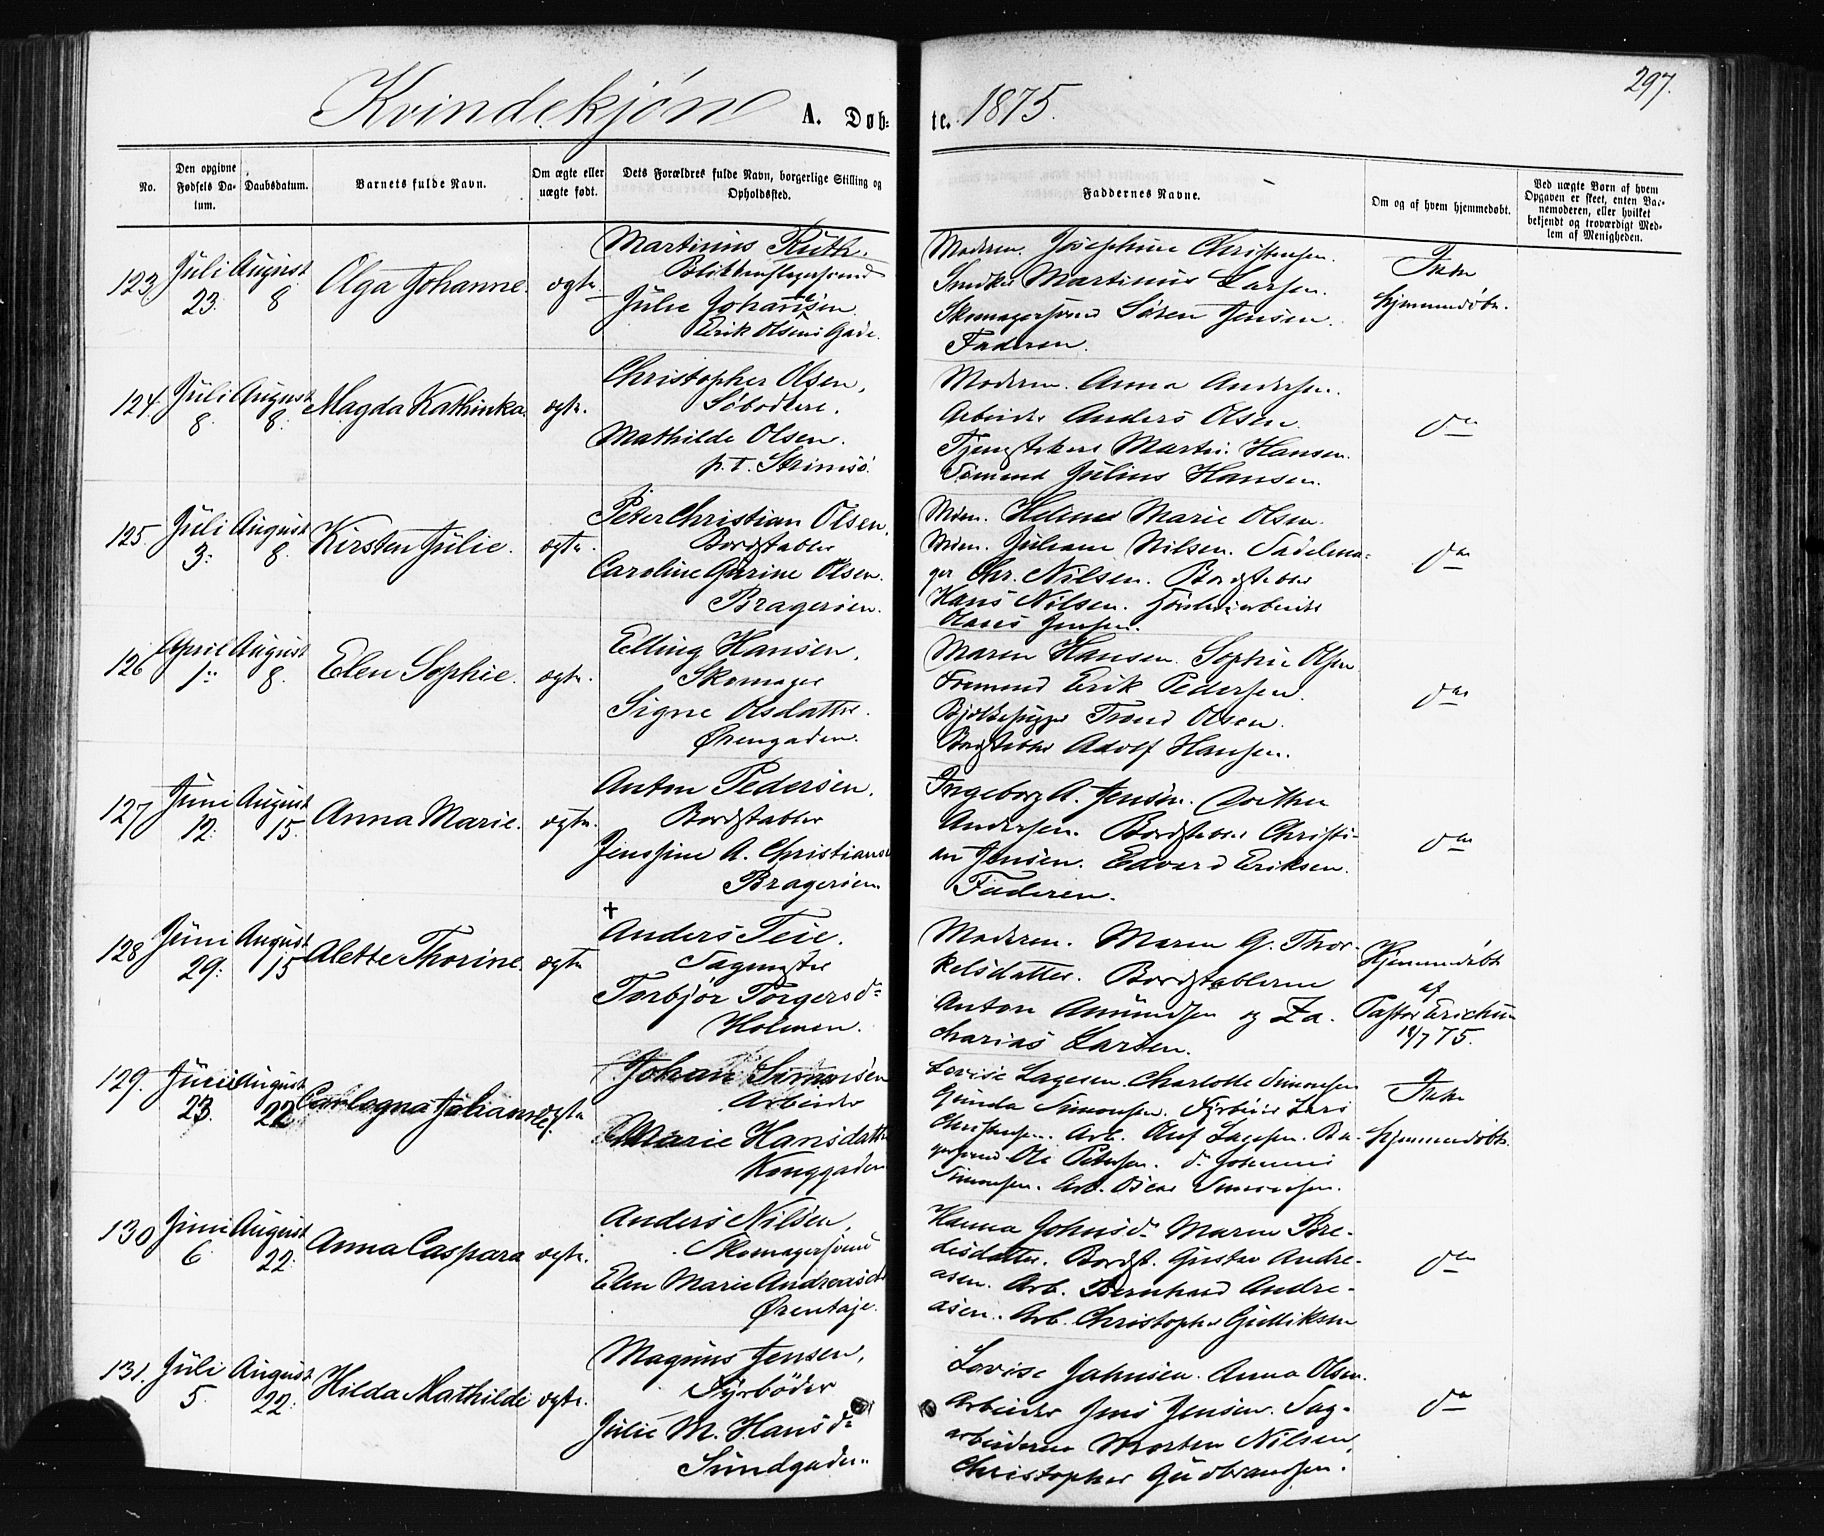 297.
Kvindekjøn A. Døb-
te. 1875.
No.
Den opgivne
Fødsels Da-
tum.
Daabsdatum.
Barnets fulde Navn.
Om ægte eller
uægte født.
Dets Forældres fulde Navn, borgerlige Stilling og
Opholdssted.
Faddernes Navne.
Om og af hvem hjemmedøbt.
Ved uægte Børn af hvem
Opgaven er skeet, enten Bar-
nemoderen, eller hvilket
bekjendt og troværdigt Med-
lem af Menigheden.
123
Juli
23.
August
8
Olga Johanne.
ægte
Martinus Ruth.
Blikkenslagersvend
Julie Johansen.
Erik Olsens Gade.
Moderen. Josephine Christensen.
Snedker Martinus Larsen.
Skomagersvend Søren Jensen.
Faderen.
Ikke
hjemmedøbt.
124.
Juli
8.
August
8.
Magda Kathinka.
ægte.
Christopher Olsen,
Mathilde Olsen.
p.t. Strømsø.
Moderen. Anna Andersen.
Arbeider Anders Olsen.
Martin Hansen.
Sømand Julius Hansen.
do
125.
Juli
3.
August
8.
Kirsten Julie.
ægte.
Peter Christian Olsen,
Bordstabler
Caroline Gurine Olsen.
Bragerøen.
Marie Olsen.
Juliane Nilsen. Sadelma-
ger Chr. Nilsen. Bordstabler
Hans Nilsen.
Jensen.
do
126
April
1.
August
8.
Elen Sophie.
ægte.
Elling Hansen,
Skomager
Signe Olsdatter.
Ørengaden.
Maren Hansen. Sophie Olsen
Formand Erik Pedersen.
Trond Olsen.
Bordstabler Adolf Hansen.
do
127
Juni
12.
August
15.
Anna Marie.
ægte.
Anton Pedersen.
Bordstabler
Jensine A. Christians
Bragerøen
Ingeborg A. Jensen. Dorthea
Andersen. Bordstabler Christi-
an Jensen. Edvard Eriksen.
Faderen.
do
128
Juni
29.
August
15
Alette Thorine.
ægte
†
Anders Teie.
Sagmester
Torbjør Torgersd.
Holmen.
Moderen. Maren G. Thor-
kelsdatter. Bordstablerne
Anton Amundsen og Za-
charias Larsen.
Hjemmedøbt
af
Pastor Erichsen
18/7 75.
129.
Juni
23.
August
22
Carlogna Juliane.
ægte
Johan Simonsen
Arbeider
Marie Hansdatter
Konggaden
Lovise Lagesen. Charlotte Simonsen
Gunda Simonsen. Fyrbøder Lars
Christensen. Arb. Oluf Lagesen. Ba-
gersvend Ole Petersen. do Johannes
Simonsen. Arb. Simonsen.
Ikke
hjemmedøbt.
130
Juni
6.
August
22.
Anna Caspara
ægte.
Anders Nilsen,
Skomagersvend
Elen Marie Andreasd.
Ørentaje.
Hanna Johnsd. Maren Bre-
desdatter. Bordst. Gustav Andre-
asen. Arb. Bernhard Andre-
asen. Arb. Christopher Gulliksen
do
131.
Juli
5.
August
22.
Hilda Mathilde
ægte.
Magnus Jensen,
Fyrbøder
Julie M. Hansd.
Sundgaden.
Lovise Jahnsen. Anna Olsen.
Arbeider Jens Jensen. Sag-
arbeiderne Morten Nilsen,
Christopher Gudbrandsen.
do